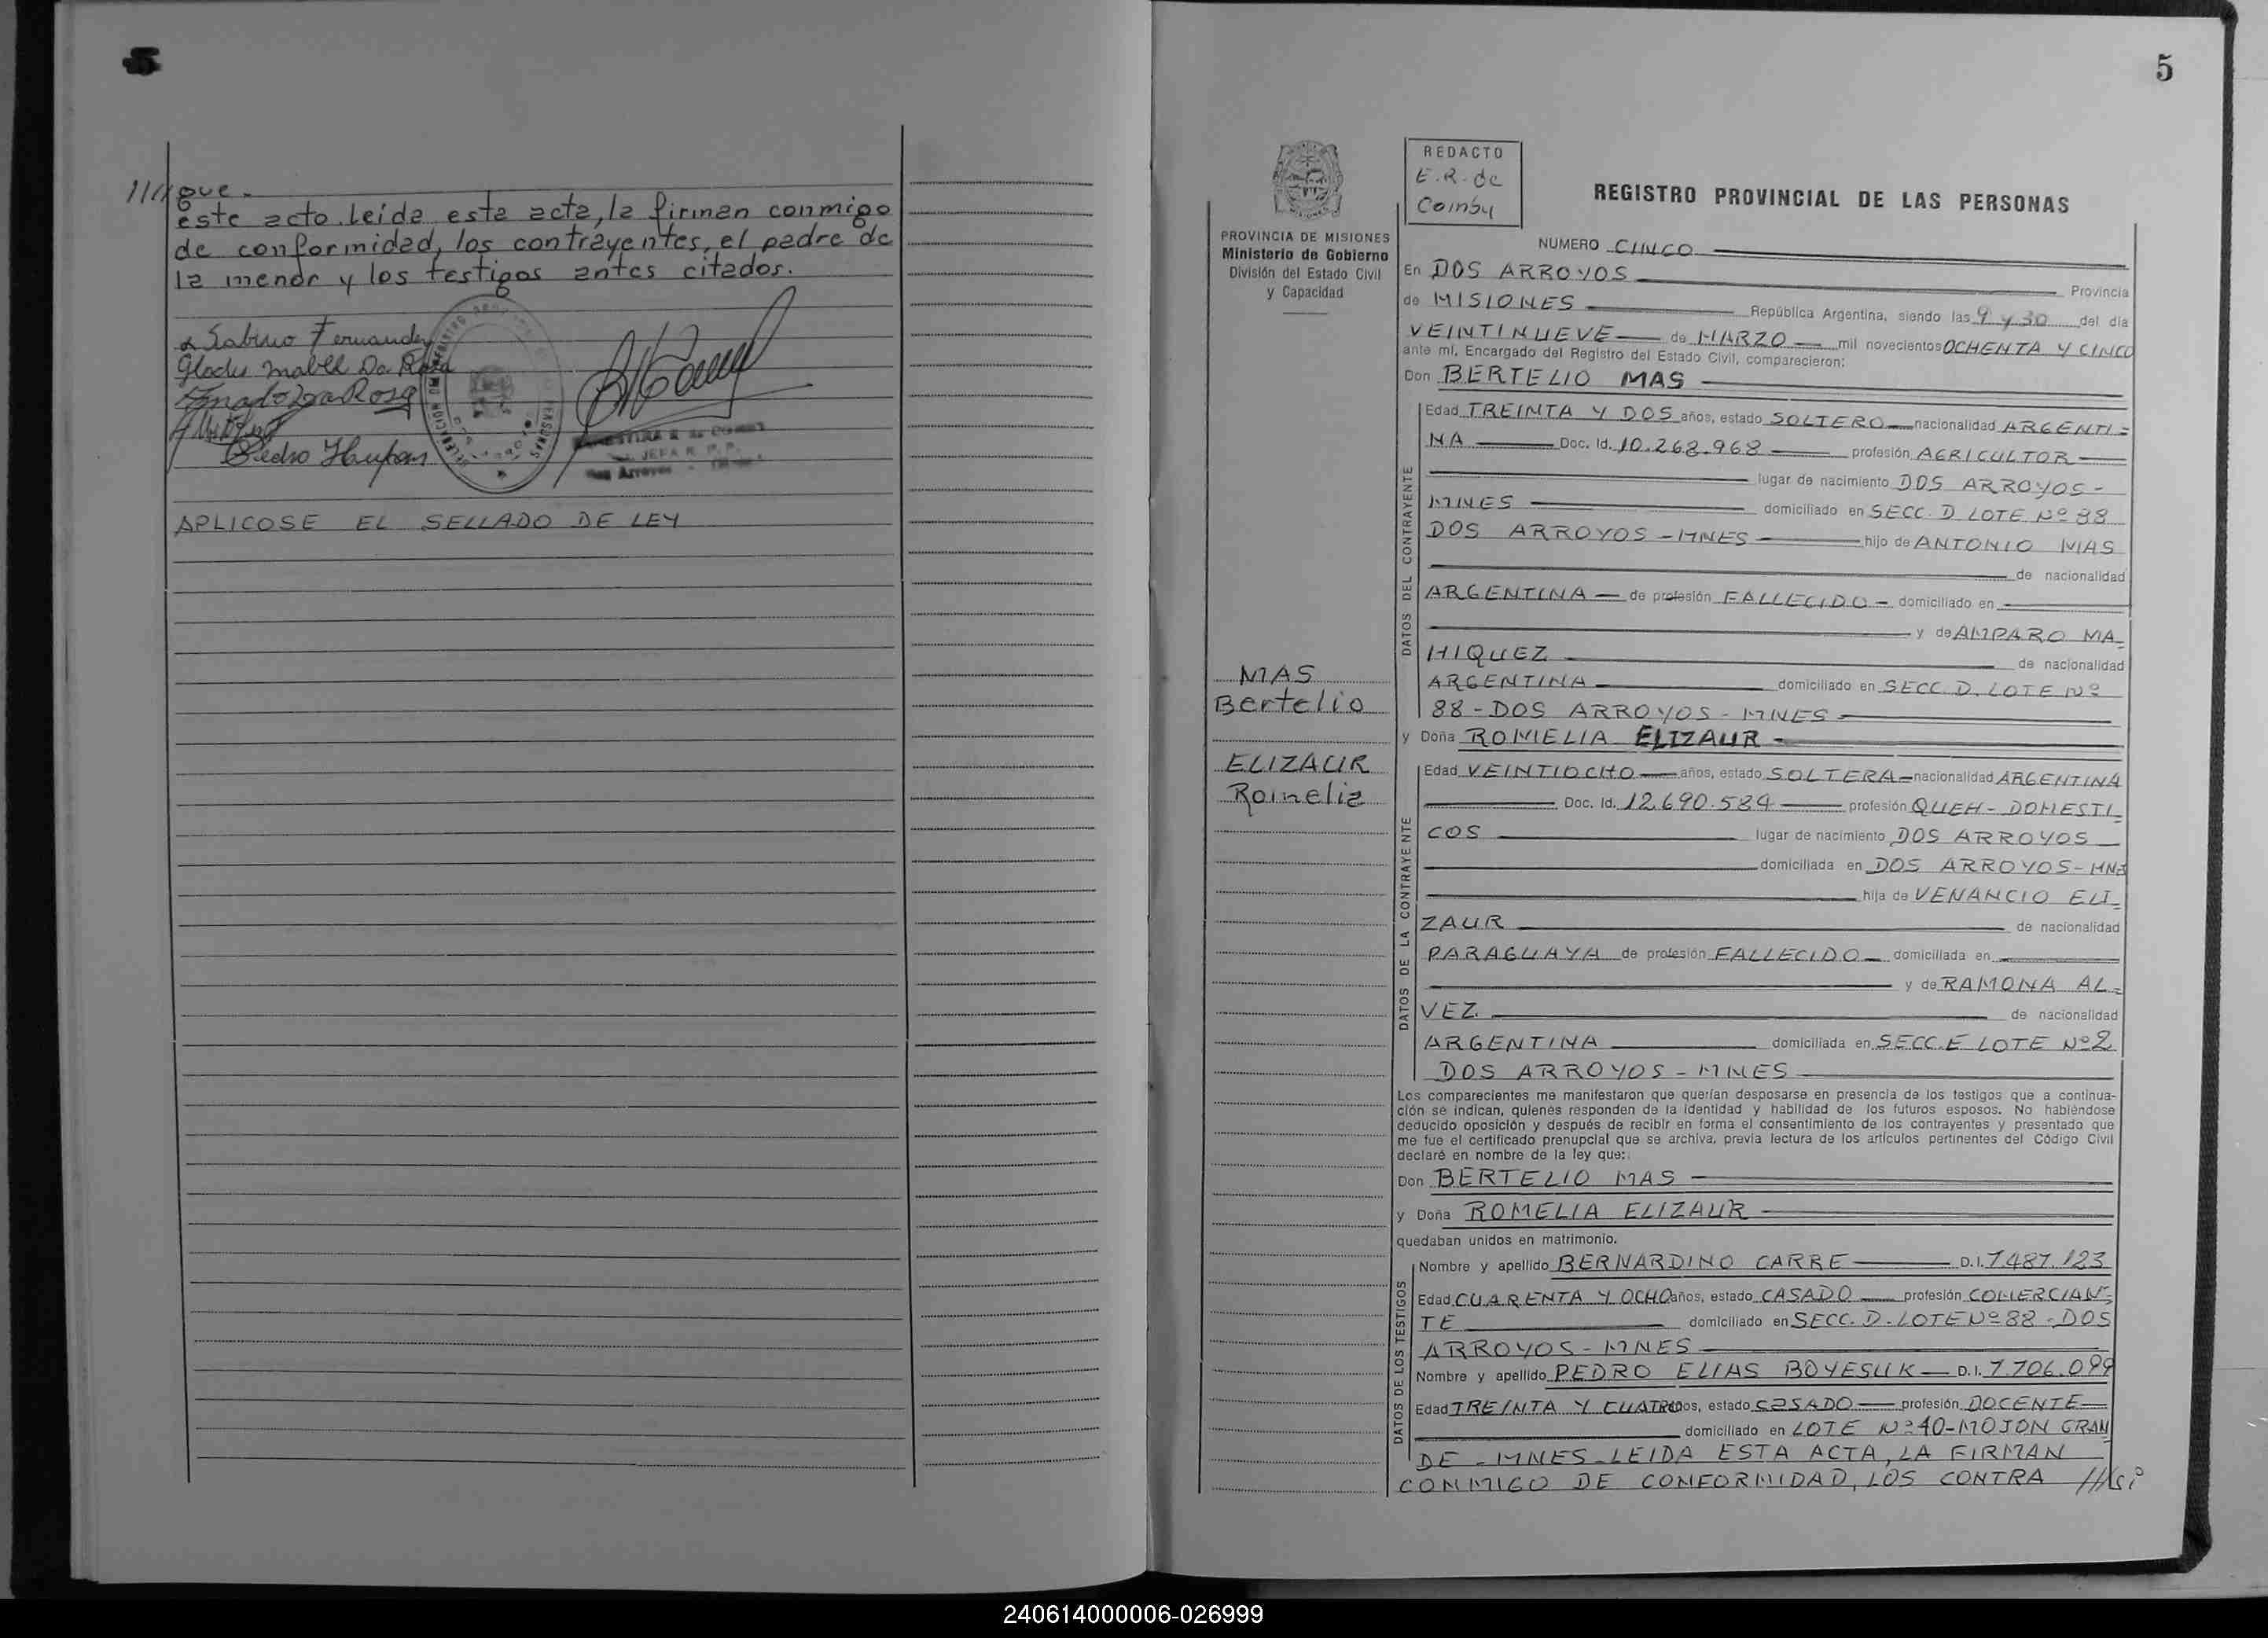 ///gue.
este acto. Leida esta acta, la firman conmigo
de conformidad, los contrayentes, el padre de
la menor y los testigos antes citados.
Sabino Fernandez
Gladis Mabel Da Rosa
Da Rosa
Pedro
APLICOSE EL SELLADO DE LEY
5
PROVINCIA DE MISIONES
Ministerio de Gobierno
División del Estado Civil
y Capacidad
REDACTO
E.R. de
Comby
REGISTRO PROVINCIAL DE LAS PERSONAS
NUMERO CINCO
En DOS ARROYOS Provincia
de MISIONES República Argentina, siendo las 9 y 30 del día
VEINTINUEVE de MARZO mil novecientos OCHENTA Y CINCO
ante mí, Encargado del Registro del Estado Civil, comparecieron:
Don BERTELIO MAS
DATOS DEL CONTRAYENTE
Edad TREINTA Y DOS años, estado SOLTERO nacionalidad ARGENTI=
NA Doc. Id. 10.268.968 profesión AGRICULTOR
lugar de nacimiento DOS ARROYOS-
MNES domiciliado en SECC. D LOTE Nº 88
DOS ARROYOS - MNES hijo de ANTONIO MAS
de nacionalidad
ARGENTINA de profesión FALLECIDO domiciliado en
y de AMPARO MA_
HIQUEZ de nacionalidad
ARGENTINA domiciliado en SECC. D. LOTE Nº
88 - DOS ARROYOS - MNES
MAS
Bertelio
y Doña ROMELIA ELIZAUR
ELIZAUR
Romelia
DATOS DE LA CONTRAYENTE
Edad VEINTIOCHO años, estado SOLTERA nacionalidad ARGENTINA
Doc. Id. 12.690.584 profesión QUEH-DOMESTI_
COS lugar de nacimiento DOS ARROYOS
domiciliada en DOS ARROYOS-MNES
hija de VENANCIO ELI_
ZAUR de nacionalidad
PARAGUAYA de profesión FALLECIDO domiciliada en
y de RAMONA AL=
VEZ de nacionalidad
ARGENTINA domiciliada en SECC. E LOTE Nº 2
DOS ARROYOS - MNES
Los comparecientes me manifestaron que querían desposarse en presencia de los testigos que a continua-
ción se indican, quienes responden de la identidad y habilidad de los futuros esposos. No habiéndose
deducido oposición y después de recibir en forma el consentimiento de los contrayentes y presentado que
me fue el certificado prenupcial que se archiva, previa lectura de los artículos pertinentes del Código Civil
declaré en nombre de la ley que:
Don BERTELIO MAS
y Doña ROMELIA ELIZAUR
quedaban unidos en matrimonio.
DATOS DE LOS TESTIGOS
Nombre y apellido BERNARDINO CARRE D.I. 7.487.123
Edad CUARENTA Y OCHO años, estado CASADO profesión COMERCIAN=
TE domiciliado en SECC. D. LOTE Nº 88 - DOS
ARROYOS - MNES
Nombre y apellido PEDRO ELIAS BOYESUK D.I. 7.706.099
Edad TREINTA Y CUATRO años, estado CASADO profesión DOCENTE
domiciliado en LOTE Nº 40-MOJON GRAN
DE - MNES - LEIDA ESTA ACTA, LA FIRMAN
CONMIGO DE CONFORMIDAD, LOS CONTRA ///si
240614000006-026999